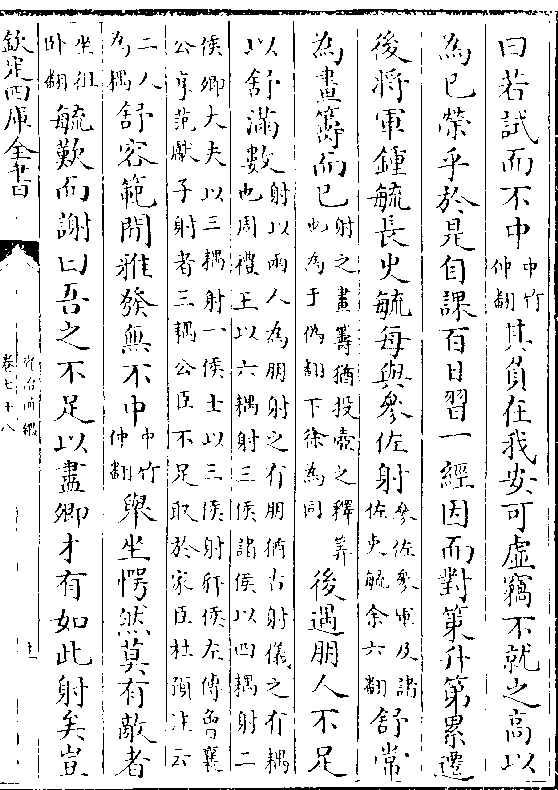 曰若試而不中中竹仲翻其負在我安可虛竊不就之高以
為已榮乎於是自課百日習一經因而對策升第累遷
後將軍鍾毓長史毓每與參佐射參佐參軍及諸佐史毓余六翻舒常
為畫籌而已射之畫籌猶投壺之釋筭也為于偽翻下徐為同後遇朋人不足
以舒滿數射以兩人為朋射之有朋猶古射儀之有耦也周禮王以六耦射三侯諸侯以四耦射二
侯卿大夫以三耦射一侯士以三侯射豻侯左傳魯襄公享范獻子射者三耦公臣不足取於家臣杜預注云
二人為耦舒容範閑雅發無不中中竹仲翻舉坐愕然莫有敵者
坐徂卧翻毓歎而謝曰吾之不足以盡卿才有如此射矣豈
欽定四庫全書
資治通鑑
卷七十八